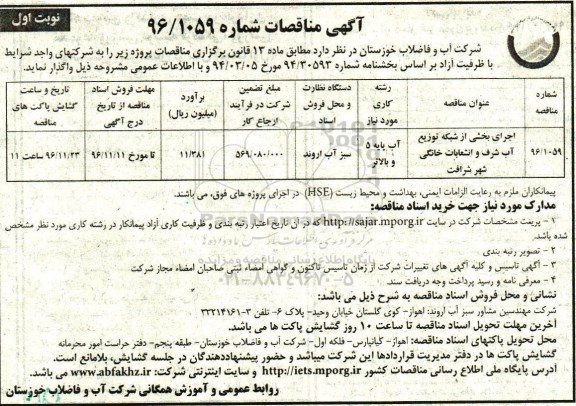 نوبت اول
آگهی مناقصات شماره ۹۶/۱۰۵۹
شرکت آب و فاضلاب خوزستان در نظر دارد مطابق ماده ۱۳ قانون برگزاری مناقصات پروژه زیر را به شرکتهای واجد شرایط
با ظرفیت آزاد بر اساس بخشنامه شماره ۹۴/۳۰۵۹۳ مورخ ۹۴/۰۳/۰۵ و با اطلاعات عمومی مشروحه ذیل واگذار نماید.
شماره مناقصه
عنوان مناقصه
رشته کاری مورد نیاز
دستگاه نظارت و محل فروش اسناد
مبلغ تضمین شرکت در فرآیند ارجاع کار
برآورد (میلیون ریال)
مهلت فروش اسناد مناقصه از تاریخ درج آگهی
تاریخ و ساعت گشایش پاکت های مناقصه
۹۶/۱۰۵۹
اجرای بخشی از شبکه توزیع آب شرف و انشعابات خانگی شهر شرافت
آب پایه ۵ و بالاتر
سبز آب اروند
۵۶۹/۰۸۰/۰۰۰
۱۱/۳۸۱
تا مورخ ۹۶/۱۱/۱۱
۹۶/۱۱/۲۳ ساعت ۱۱
پیمانکاران ملزم به رعایت الزامات ایمنی، بهداشت و محیط زیست (HSE) در اجرای پروژه های فوق، می باشند.
مدارک مورد نیاز جهت خرید اسناد مناقصه:
۱ - پرینت مشخصات شرکت در سایت http://sajar.mporg.ir که در آن تاریخ اعتبار رتبه بندی و ظرفیت کاری آزاد پیمانکار در رشته کاری مورد نظر مشخص
شده باشد.
۲ - تصویر رتبه بندی
۳ - آگهی تاسیس و کلیه آگهی های تغییرات شرکت از زمان تاسیس تاکنون و گواهی امضاء ثبتی صاحبان امضاء مجاز شرکت
۴ - معرفی نامه و رسید پرداخت وجه دریافت سند.
نشانی و محل فروش اسناد مناقصه به شرح ذیل می باشد:
شرکت مهندسین مشاور سبز آب اروند: اهواز- کوی گلستان خیابان وحید- پلاک ۶- تلفن ۳-۳۳۲۱۴۱۶۱
آخرین مهلت تحویل اسناد مناقصه تا ساعت ۱۰ روز گشایش پاکت ها می باشد.
محل تحویل پاکتهای اسناد مناقصه: اهواز- کیانپارس- فلکه اول- شرکت آب و فاضلاب خوزستان- طبقه پنجم- دفتر حراست امور محرمانه
گشایش پاکت ها در دفتر مدیریت قراردادها این شرکت میباشد و حضور پیشنهاددهندگان در جلسه گشایش، بلامانع است.
آدرس پایگاه ملی اطلاع رسانی مناقصات کشور http://iets.mporg.ir و سایت اینترنتی شرکت: www.abfakhz.ir می باشد.
روابط عمومی و آموزش همگانی شرکت آب و فاضلاب خوزستان